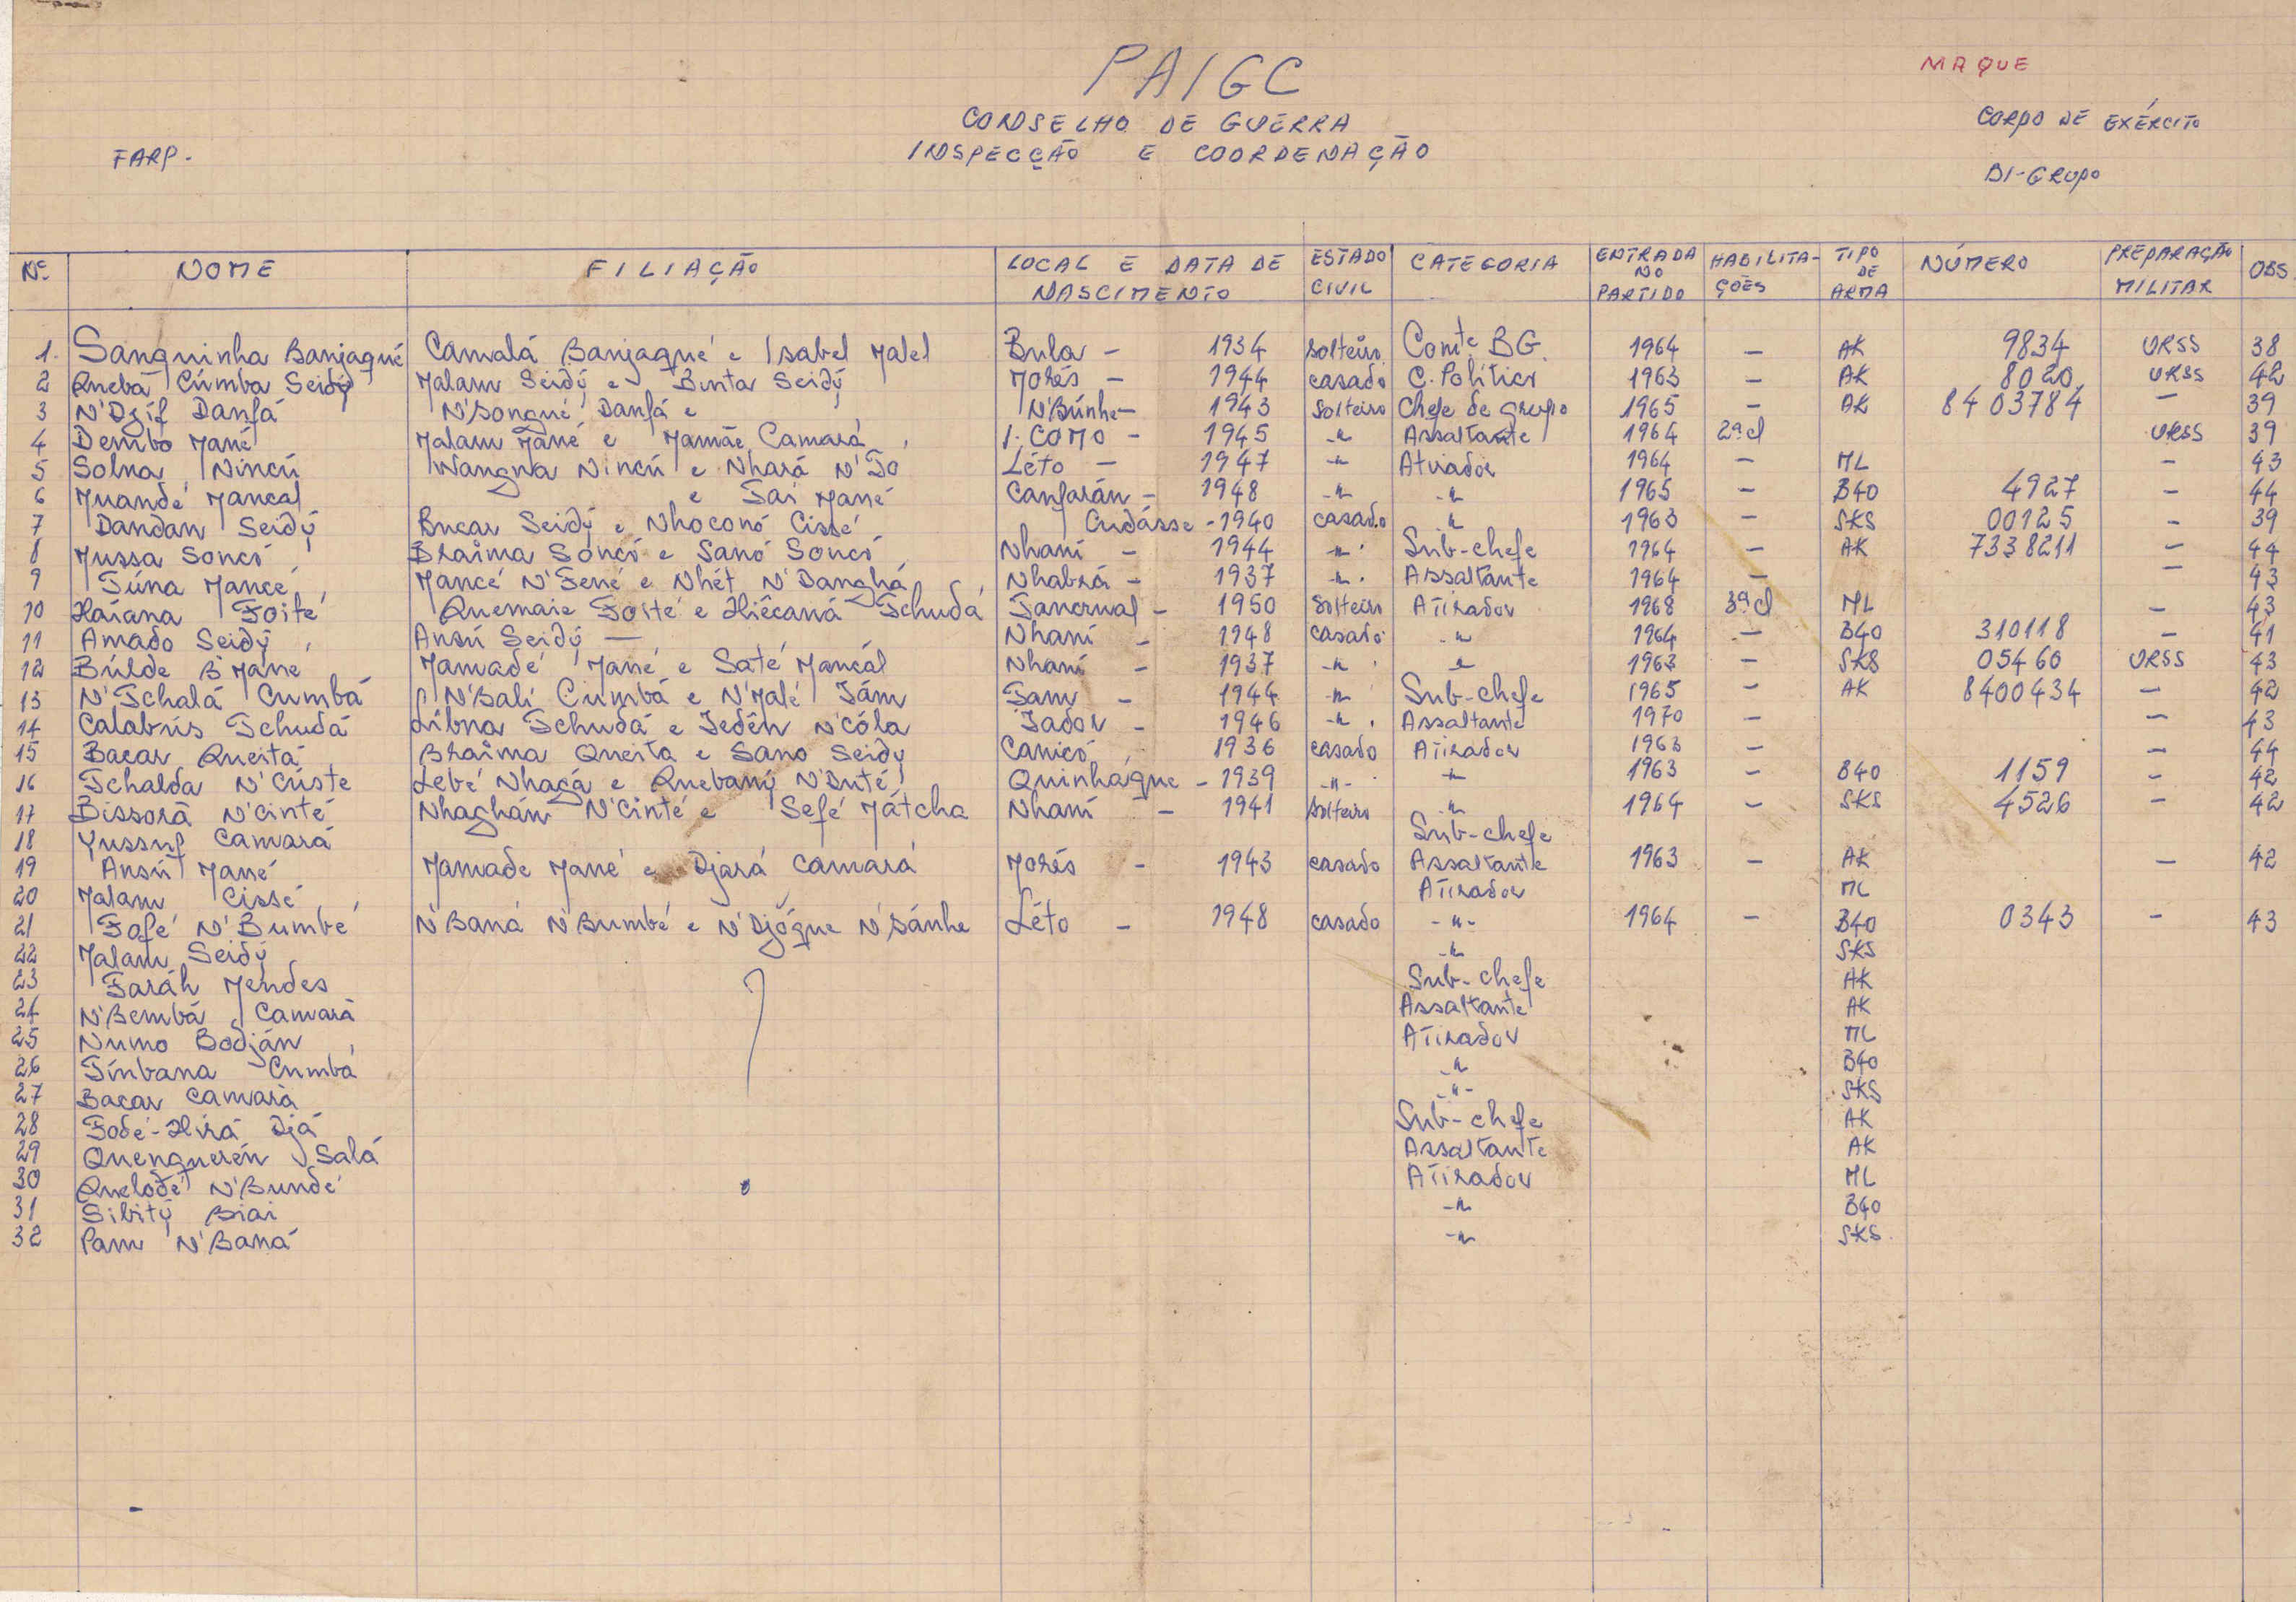 PAIGC
MAQUE
CONSELHO DE GUERRA
CORPO DE EXÉRCITO
FARP.
INSPECÇÃO E COORDENAÇÃO
BI-GRUPO
Nº. NOME FILIAÇÃO LOCAL E DATA DE NASCIMENTO ESTADO CIVIL CATEGORIA ENTRADA NO PARTIDO HABILITAÇÕES TIPO DE ARMA NÚMERO PREPARAÇÃO MILITAR OBS
1. Sanguinha Banjaqué Camalá Banjaqué e Isabel Malel Bula - 1934 solteiro Comte BG. 1964 - AK 9834 URSS 38
2 Quebá Cúmba Seidy Malam Seidy e Binta Seidy Morés - 1944 casado C. Político 1963 - AK 8020 URSS 42
3 N'Djif Danfá N'Bongué Danfá e N'Búnhe - 1943 solteiro Chefe de grupo 1965 - AK 8403784 - 39
4 Dembo Mané Malam Mané e Mamãe Camará I. COMO - 1945 -"- Assaltante 1964 2ª cl URSS 39
5 Solna Nincú Wangna Nincú e Nhará N'To Léto - 1947 -"- Atirador 1964 - ML - 43
6 Muandé Mancal e Fai Mané Canfarán - 1948 -"- -"- 1965 - B40 4927 - 44
7 Dandan Seidy Bucar Seidy e Nhoconó Cissé Cudásse - 1940 casado " 1963 - SKS 00125 - 39
8 Mussa Soncó Braima Soncó e Sanó Soncó Nhaní - 1944 -"- Sub-chefe 1964 - AK 7338211 - 44
9 Túna Mancé Mancé N'Fené e Nhét N'Danghá Nhabrá - 1937 -"- Assaltante 1964 - - 43
10 Haiana Foité Quemaie Foité e Hiêcaná Tchudá Fancrual - 1950 Solteiro Atirador 1968 3ª cl ML - 43
11 Amado Seidy Ansú Seidy — Nhaní - 1948 casado -"- 1964 - B40 310118 - 41
12 Búlde B'Mane Mamadé Mané e Saté Mancál Nhaní - 1937 -"- " 1963 - SKS 05460 URSS 43
13 N'Tchalá Cumbá N'Bali Cumbá e N'Malé Tám Fam - 1944 -"- Sub-chefe 1965 - AK 8400434 - 42
14 Calabús Tchudá Libna Tchudá e Iedên N'Cóla Jador - 1946 -"- Assaltante 1970 - - 43
15 Bacar Queita Braima Queita e Sano Seidy Canicó 1936 casado Atirador 1963 - - 44
16 Tchalda N'Cúste Lebé Nhagá e Quebany N'Duté Quinháque - 1939 -"- -"- 1963 - B40 1159 - 42
17 Bissorã N'Cinté Nhaghám N'Cinté e Sefé Mátcha Nhaní - 1941 solteiro -"- 1964 - SKS 4526 - 42
18 Yussuf Camará Sub-chefe
19 Ansú Mané Mamade Mané e Djará Camará Morés - 1943 casado Assaltante 1963 - AK - 42
20 Malam Cissé Atirador ML
21 Fofé N'Bumbé N'Baná N'Bumbé e N'Djógue N'Bánhe Léto - 1948 casado -"- 1964 - B40 0343 - 43
22 Malam Seidy -"- SKS
23 Faráh Mendes Sub-chefe AK
24 N'Bembá Camará Assaltante AK
25 Numo Bodján Atirador ML
26 Tínbana Cumbá -"- B40
27 Bacar Camará -"- SKS
28 Fodé-Hirá Djá Sub-chefe AK
29 Quenguerén Salá Assaltante AK
30 Quelodé N'Bundé Atirador ML
31 Sibity Biai -"- B40
32 Pam N'Baná -"- SKS